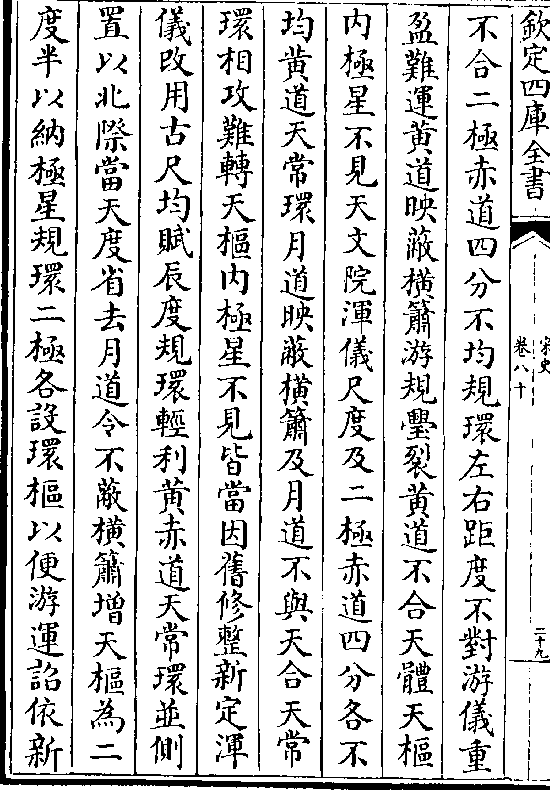 欽定四庫全書
宋史
卷八十
二十九
不合二極赤道四分不均規環左右距度不對游儀重
盈難運黃道映蔽橫簫游規璺裂黃道不合天體天樞
内極星不見天文院渾儀尺度及二極赤道四分各不
均黃道天常環月道映蔽橫簫及月道不與天合天常
環相攻難轉天樞内極星不見皆當因舊修整新定渾
儀改用古尺均賦辰度規環輕利黃赤道天常環並側
置以北際當天度省去月道令不蔽橫簫增天樞為二
度半以納極星規環二極各設環樞以便游運詔依新